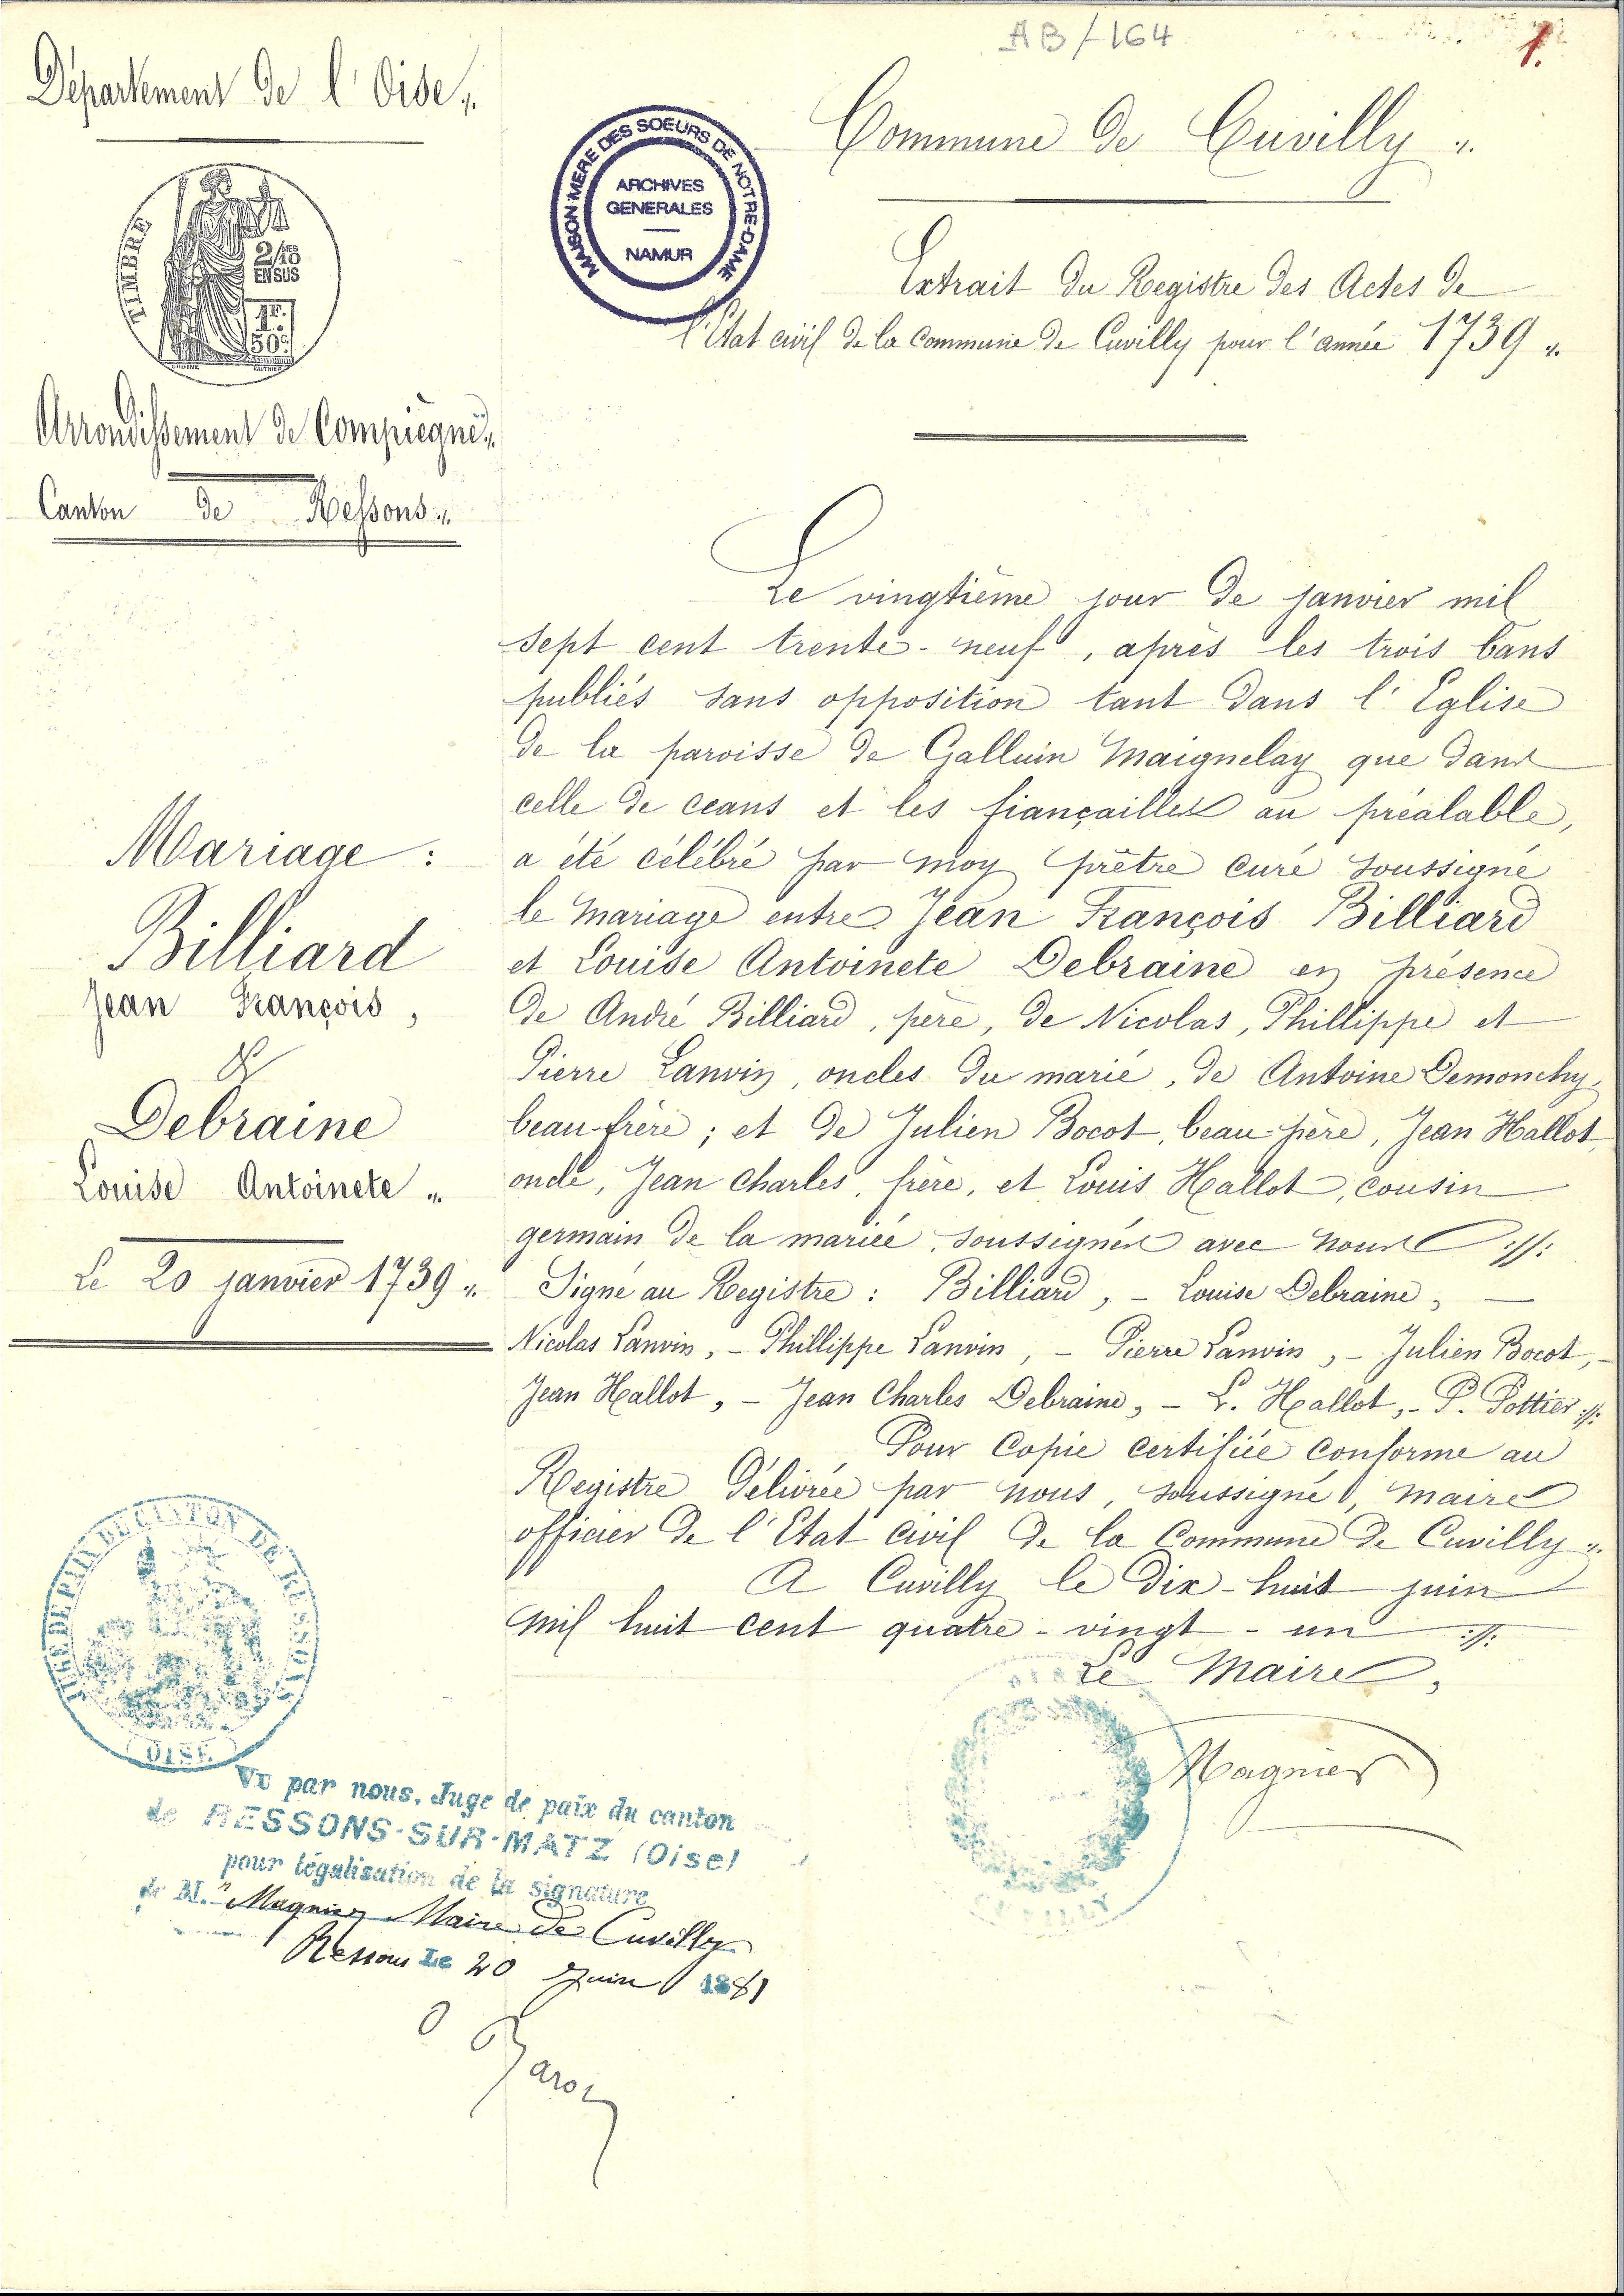 AB/164
1.
Département de l'Oise„
TIMBRE
2/10 MES
EN SUS
1F.
50c
Arrondissement de Compiègne„
Canton de Ressons„
MAISON-MERE DES SOEURS DE NOTRE-DAME
ARCHIVES
GENERALES
NAMUR
Commune de Cuvilly „
Extrait du Registre des Actes de
l'Etat civil de la commune de Cuvilly pour l'année 1739 „
Mariage :
Billiard
Jean François,
&
Debraine
Louise Antoinete „
Le 20 janvier 1739 „
Le vingtième jour de janvier mil
sept cent trente-neuf, après les trois bans
publiés sans opposition tant dans l'Eglise
de la paroisse de Galluin Maignelay que dans
celle de ceans et les fiançailles au préalable,
a été célébré par moy prêtre curé soussigné
le mariage entre Jean François Billiard
et Louise Antoinete Debraine en présence
de André Billiard, père, de Nicolas, Phillippe et
Pierre Lanvin, oncles du marié, de Antoine Demonchy,
beau-frère; et de Julien Bocot, beau-père, Jean Hallot,
oncle, Jean Charles, frère, et Louis Hallot, cousin
germain de la mariée, soussignés avec nous ://:
Signé au Registre : Billiard, – Louise Debraine, –
Nicolas Lanvin, – Phillippe Lanvin, – Pierre Lanvin, – Julien Bocot, –
Jean Hallot, – Jean Charles Debraine, – L. Hallot, – P. Pottier ://:
Pour Copie certifiée conforme au
Registre délivrée par nous, soussigné, maire
officier de l'Etat civil de la Commune de Cuvilly „
A Cuvilly le dix-huit juin
mil huit cent quatre-vingt-un ://:
Le Maire,
Magnier
JUGE DE PAIX DU CANTON DE RESSONS
(OISE)
Vu par nous, Juge de paix du canton
de RESSONS-SUR-MATZ (Oise)
pour légalisation de la signature
de M. Magnier Maire de Cuvilly
Ressons Le 20 Juin 1881